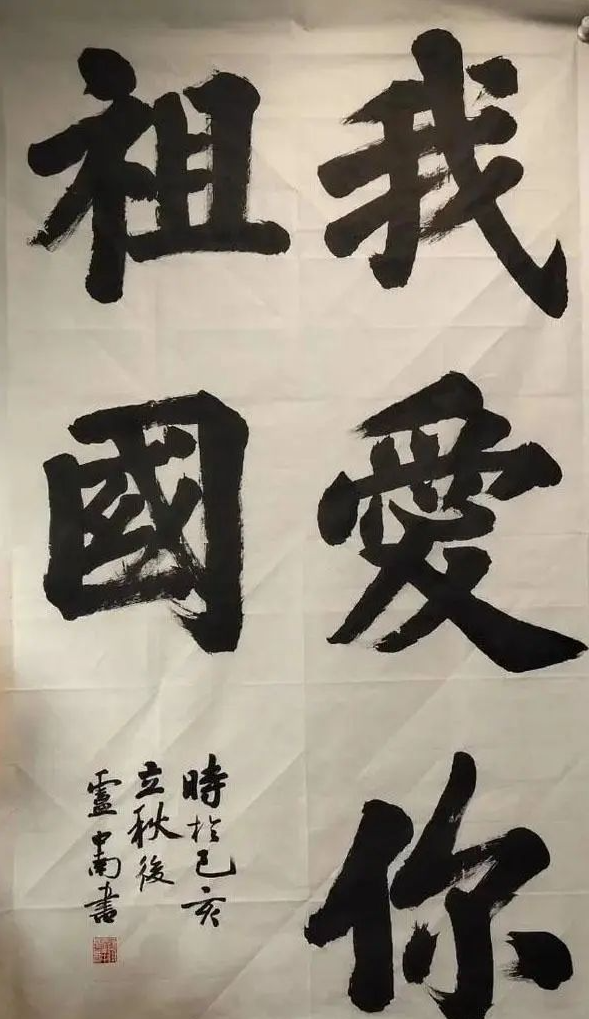 我愛你
祖國
時於己亥
立秋後
盧中南書